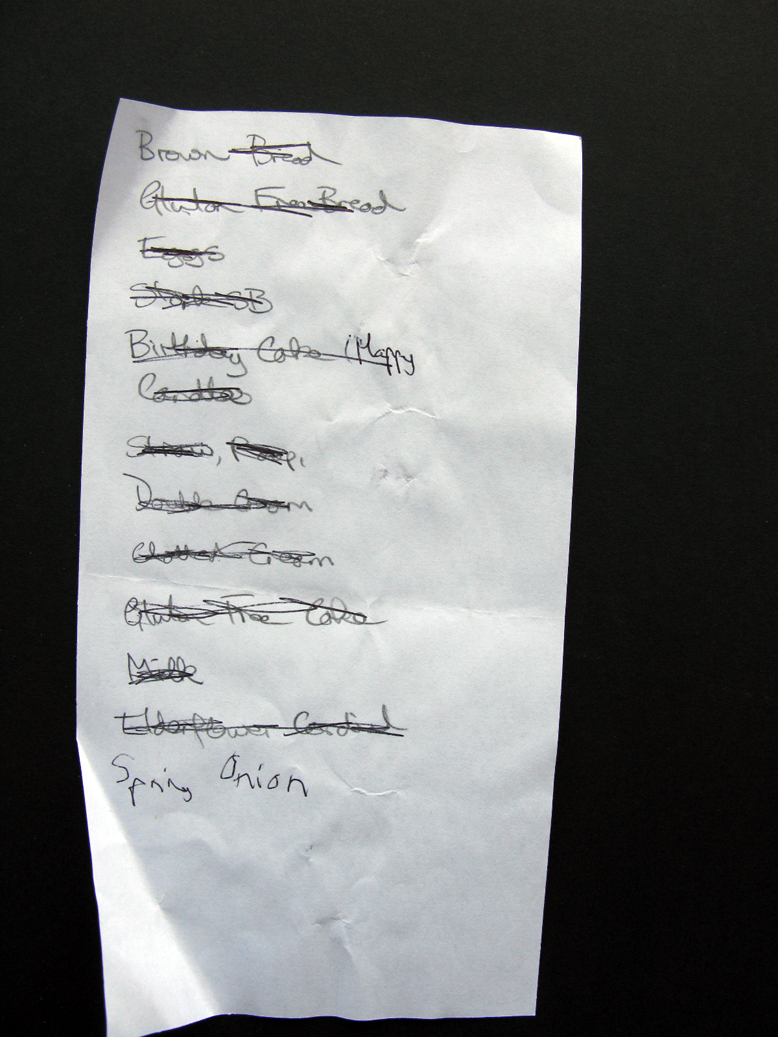 Brown Bread
Gluton Free Bread
Eggs
Stork SB
Birthday Cake (Happy
Candles
Double Cream
Clotted Cream
Gluton Free Cake
Milk
Elderflower Cordial
Spring Onion